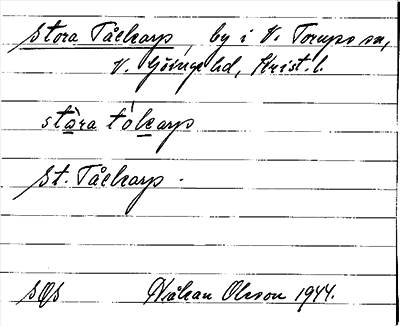 Stora Tålkarp, by i V. Torups sn,
V. Göinge hd, Krist. l.
stàra tólkarp
St. Tålkarp.
SOS Håkan Olsson 1944.